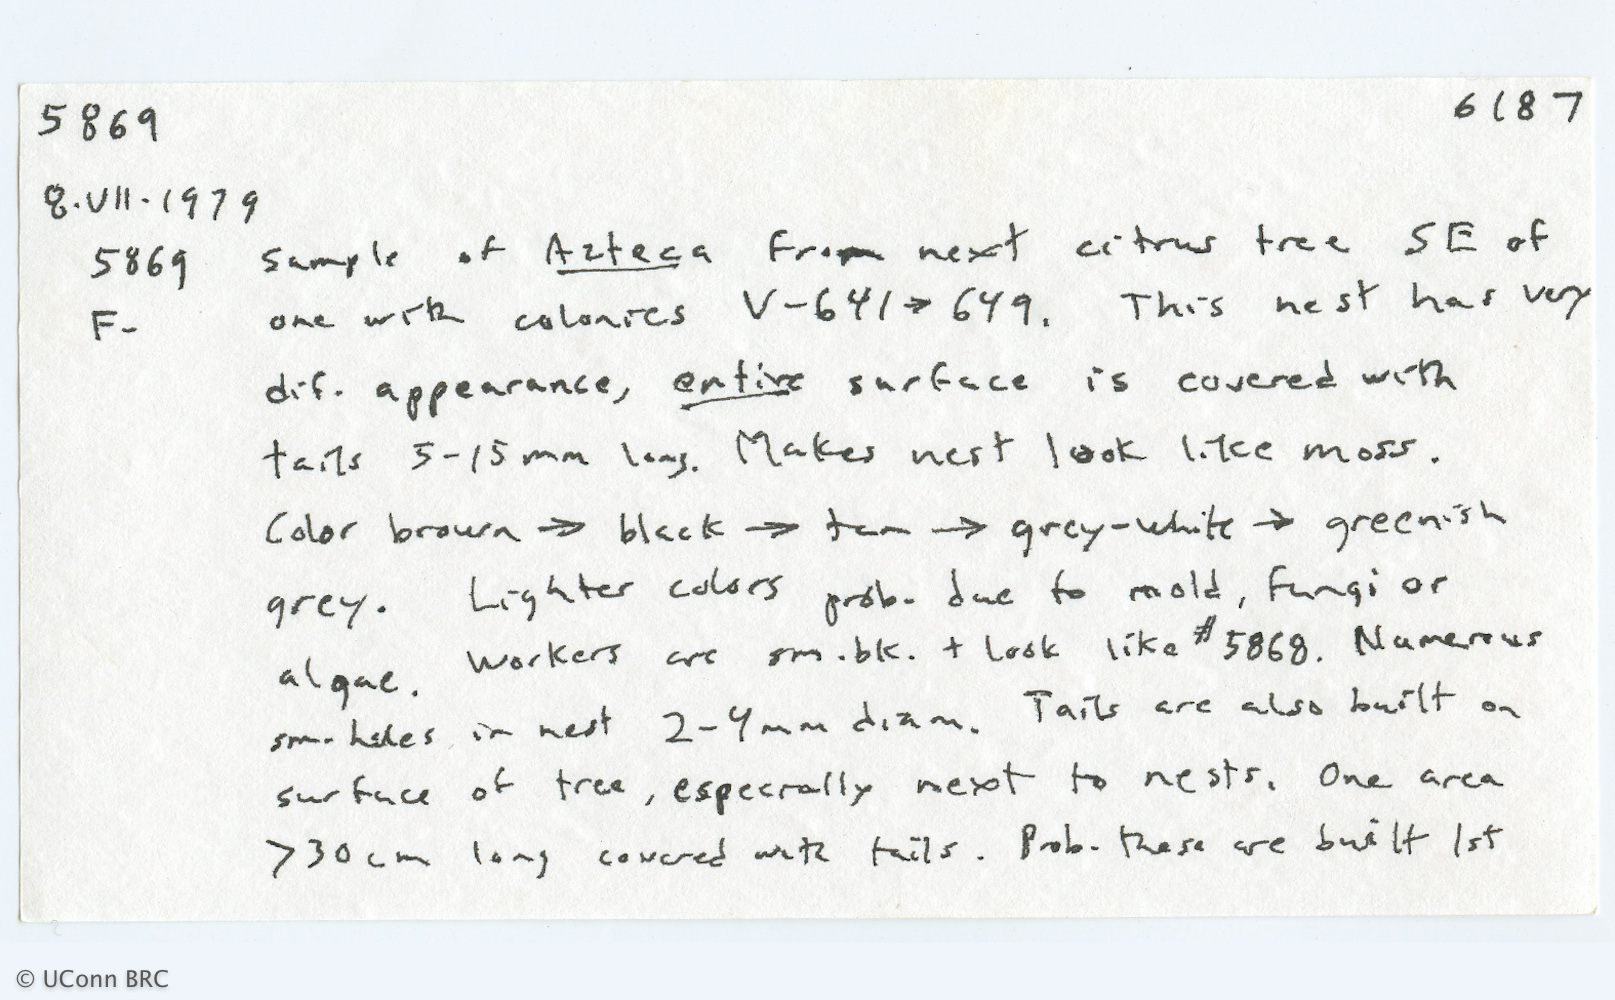 5869 6187
8.VII.1979
5869 Sample of Azteca from next citrus tree SE of
F- one with colonies V-641→649. This nest has very
dif. appearance, entire surface is covered with
tails 5-15mm long. Makes nest look like moss.
Color brown → black → tan → grey-white → greenish
grey. Lighter colors prob. due to mold, fungi or
algae. Workers are sm. bk. + look like #5868. Numerous
sm. holes in nest 2-4mm diam. Tails are also built on
surface of tree, especially next to nests. One area
>30cm long covered with tails. Prob. these are built 1st
© UConn BRC